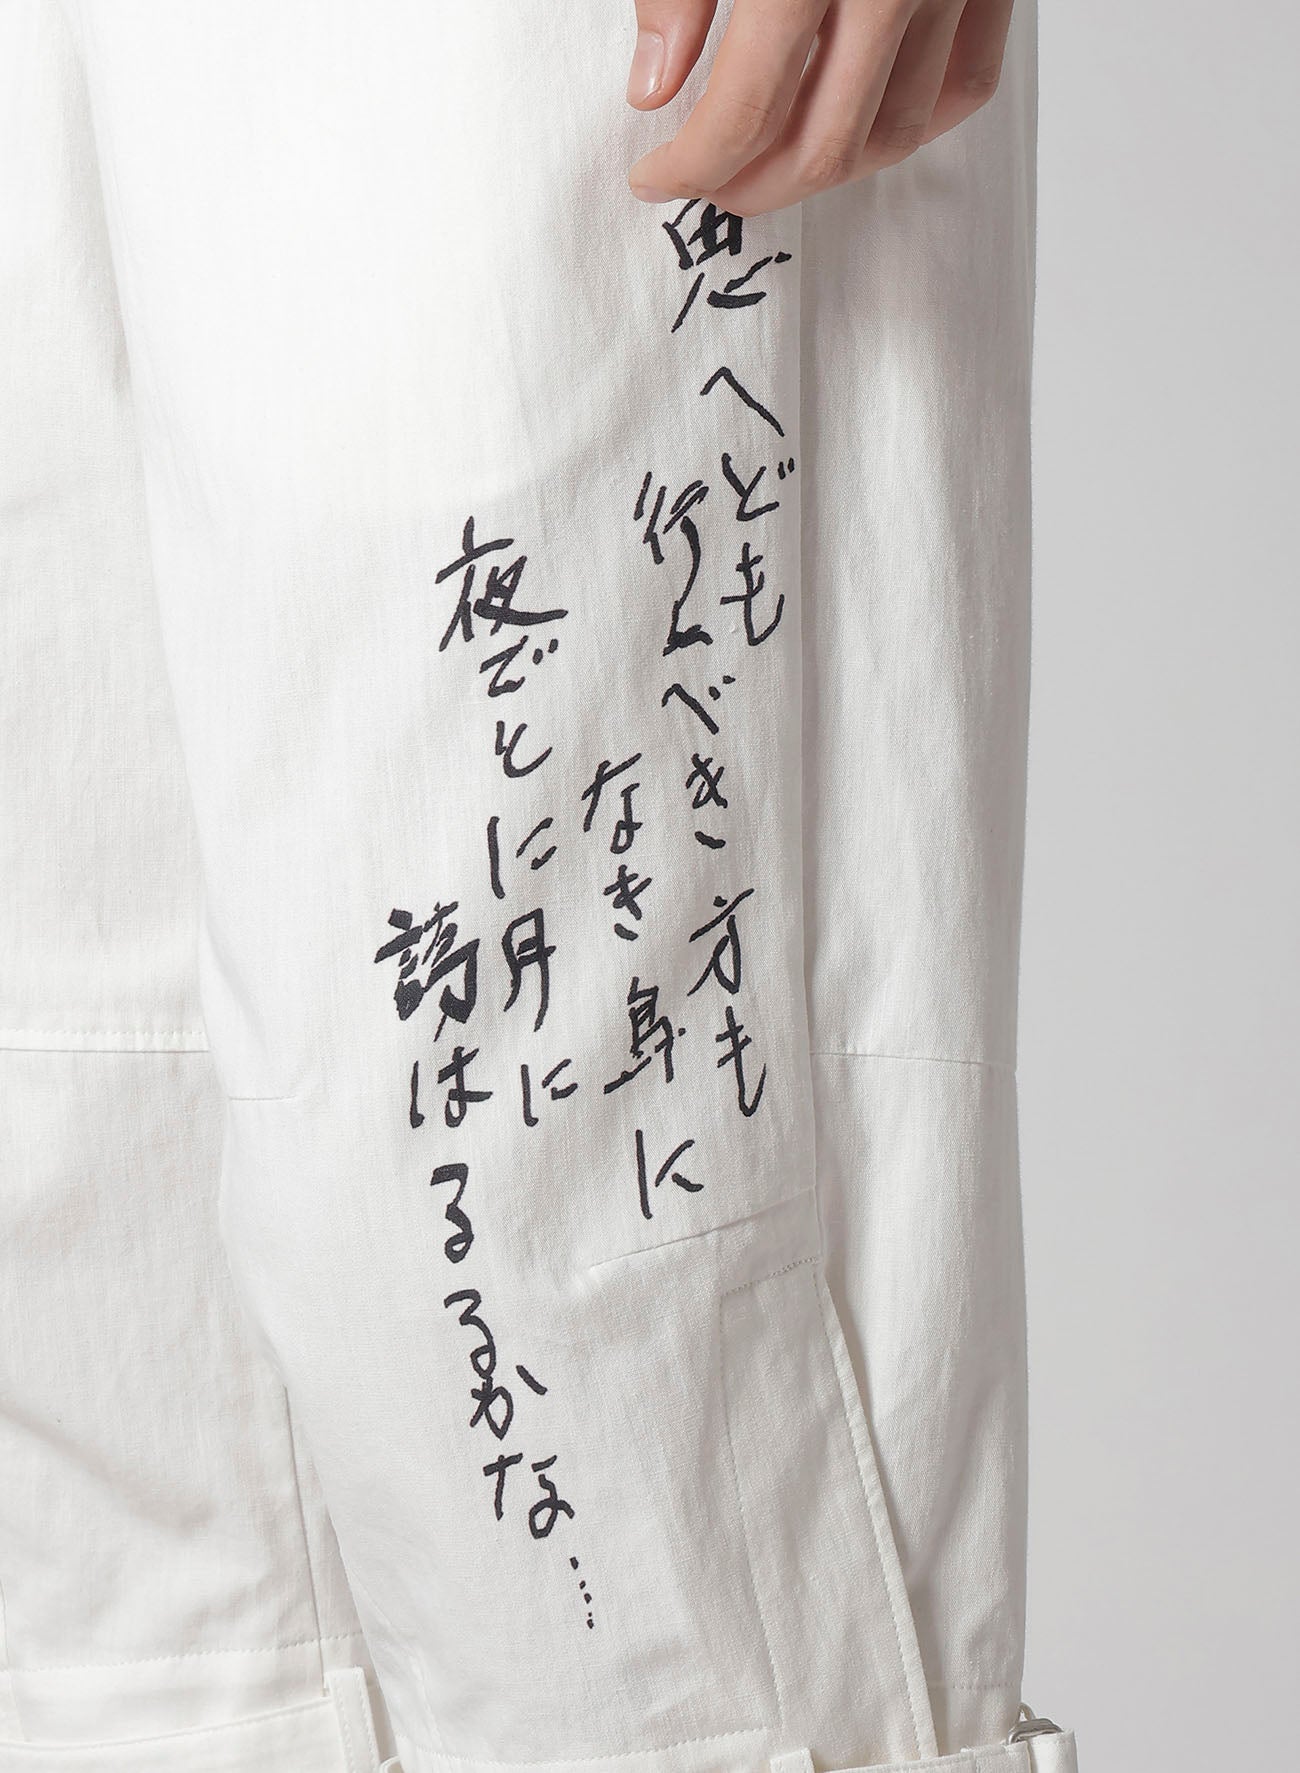 思へども
行くべき方も
なき身に
夜ごとに月に
誘はるるかな……